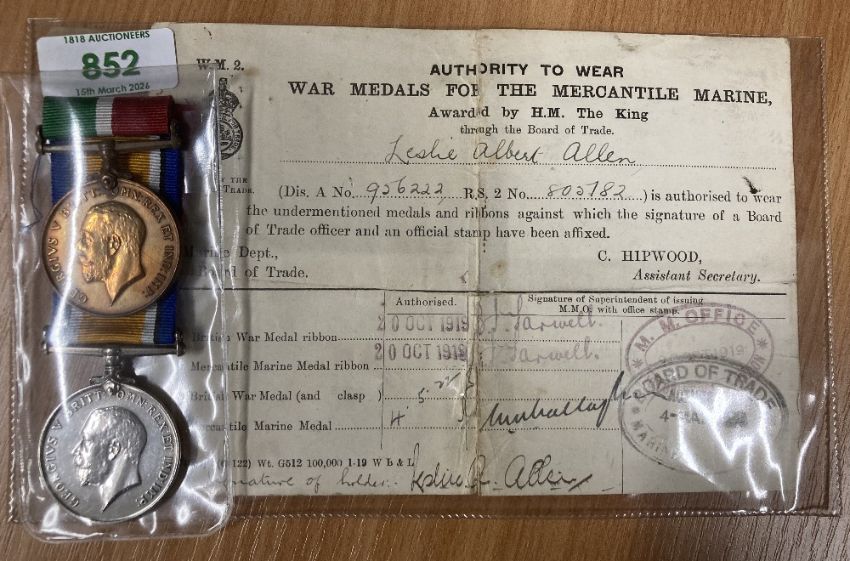 1818 AUCTIONEERS
852
15th March 2026
W.M. 2.
AUTHORITY TO WEAR
WAR MEDALS FOR THE MERCANTILE MARINE,
Awarded by H.M. The King
through the Board of Trade.
Leslie Albert Allen
TRADE.
(Dis. A No. 926222 R.S. 2 No. 805782) is authorised to wear
the undermentioned medals and ribbons against which the signature of a Board
of Trade officer and an official stamp have been affixed.
Marine Dept.,
Board of Trade.
C. HIPWOOD,
Assistant Secretary.
Authorised.
Signature of Superintendent of issuing
M.M.O. with office stamp.
British War Medal ribbon
20 OCT 1919
Mercantile Marine Medal ribbon
20 OCT 1919
British War Medal (and clasp )
Mercantile Marine Medal
M. M. OFFICE
1919
BOARD OF TRADE
122) Wt. G512 100,000 1-19 W b & L
Signature of holder: Leslie A. Allen
GEORGIVS V BRITT: OMN: REX ET IND: IMP:
GEORGIVS V BRITT: OMN: REX ET IND: IMP: